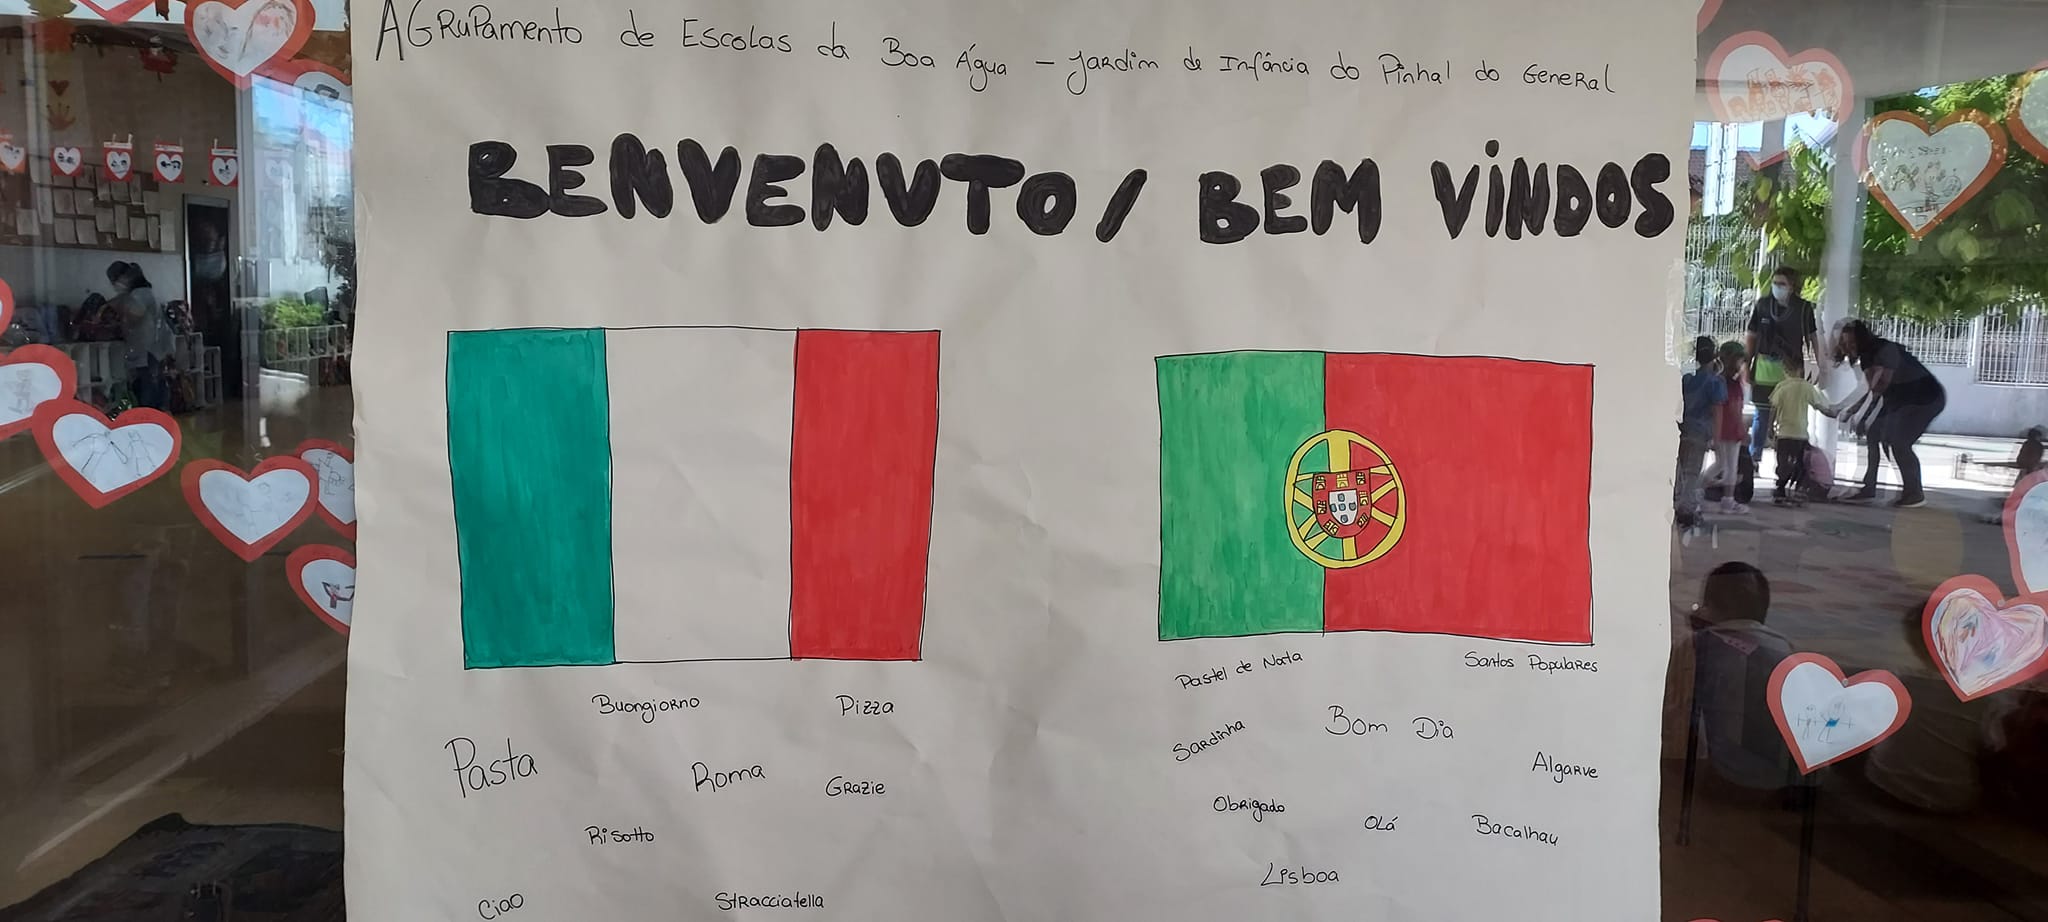 AGRUPamento de Escolas da Boa Água - Jardim de Infância do Pinhal do General
BENVENUTO / BEM VINDOS
Buongiorno
Pizza
Pasta
Roma
Grazie
Risotto
Ciao
Stracciatella
Pastel de Nata
Santos Populares
Sardinha
Bom Dia
Algarve
Obrigado
Olá
Bacalhau
Lisboa